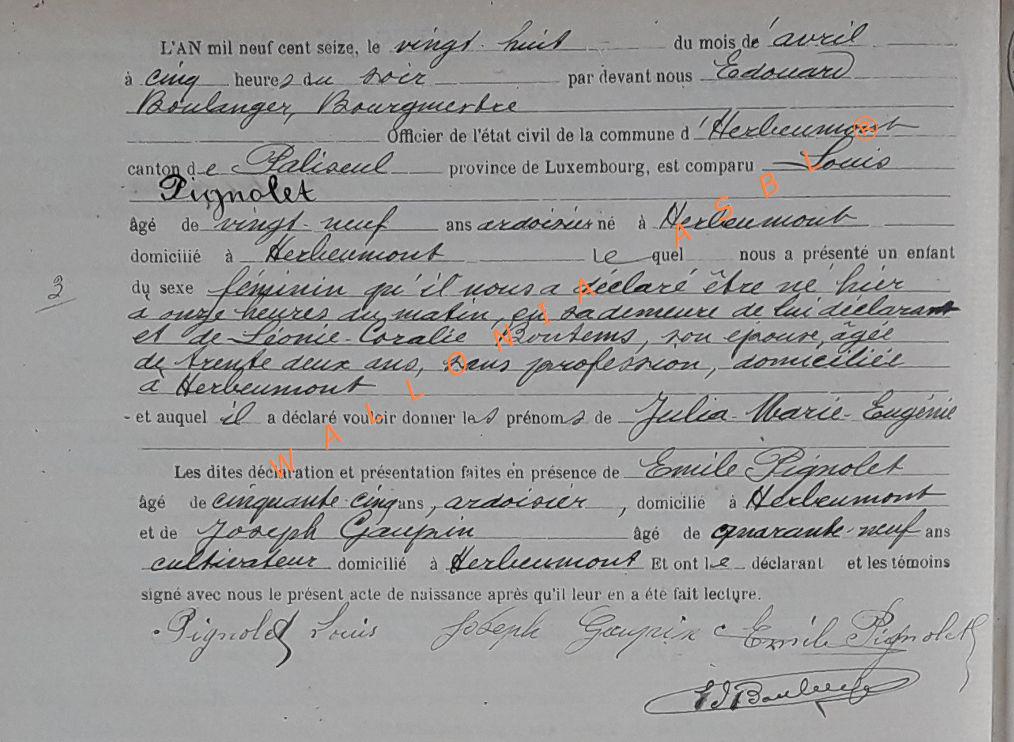 L'AN mil neuf cent seize, le vingt-huit du mois de avril
à cinq heures du soir par devant nous Edouard
Boulanger, Bourgmestre
Officier de l'état civil de la commune d'Herbeumont
canton de Paliseul province de Luxembourg, est comparu Louis
Pignolet
âgé de vingt-neuf ans ardoisier né à Herbeumont
domicilié à Herbeumont lequel nous a présenté un enfant
3
du sexe féminin qu'il nous a déclaré être né hier
à onze heures du matin, en sa demeure de lui déclarant
et de Léonie-Coralie Bontems, son épouse, âgée
de trente deux ans, sans profession, domiciliée
à Herbeumont
- et auquel il a déclaré vouloir donner les prénoms de Julia-Marie-Eugénie
Les dites déclaration et présentation faites en présence de Emile Pignolet
âgé de cinquante-cinq ans, ardoisier, domicilié à Herbeumont
et de Joseph Gaupin âgé de quarante-neuf ans
cultivateur domicilié à Herbeumont Et ont le déclarant et les témoins
signé avec nous le présent acte de naissance après qu'il leur en a été fait lecture.
Pignolet Louis Joseph Gaupin Emile Pignolet
Ed Boulanger
WALLONIA ASBL ®